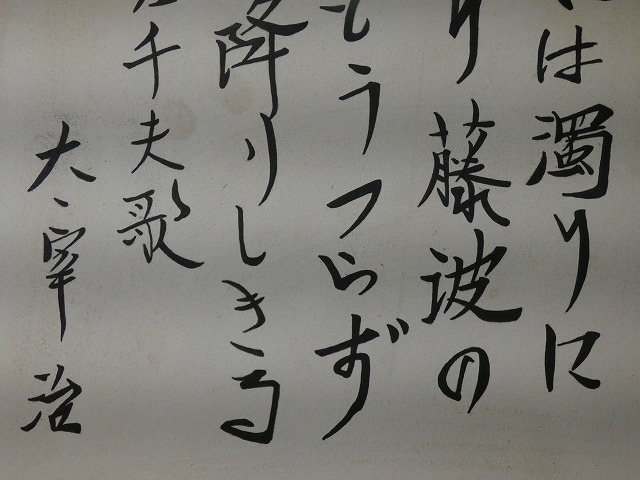 は濁りに
り藤波の
もうつらず
降りしきる
千夫歌
太宰治